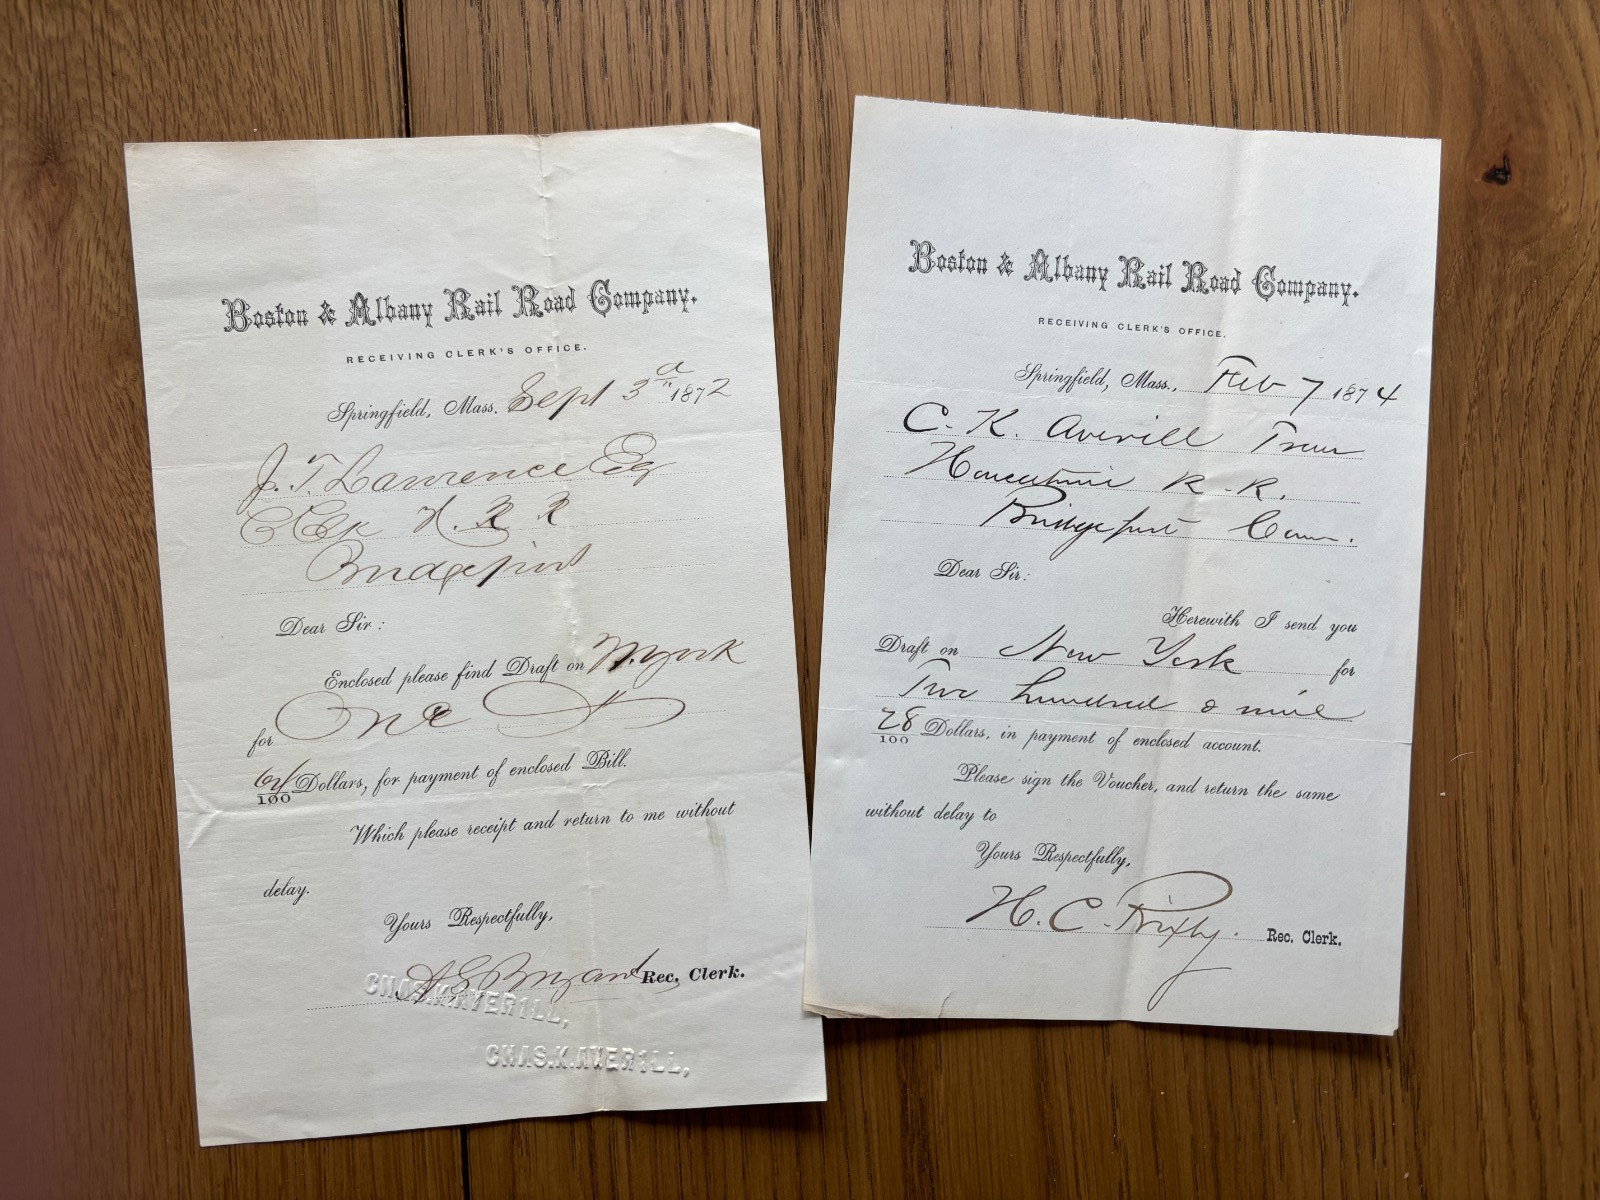 Boston & Albany Rail Road Company.
RECEIVING CLERK'S OFFICE.
Springfield, Mass. Sept 3d 1872
J. T. Lawrence Esq
Clk H. R R
Bridgeport
Dear Sir:
Enclosed please find Draft on N. York
for One
64/100 Dollars, for payment of enclosed Bill.
Which please receipt and return to me without
delay.
Yours Respectfully,
A G Bryant Rec. Clerk.
CHAS.K.AVERILL,
CHAS.K.AVERILL,
Boston & Albany Rail Road Company.
RECEIVING CLERK'S OFFICE.
Springfield, Mass., Feb 7 1874
C. K. Averill Treas
Housatonic R. R.
Bridgeport Conn.
Dear Sir:
Herewith I send you
Draft on New York for
Two hundred & nine
28/100 Dollars, in payment of enclosed account.
Please sign the Voucher, and return the same
without delay to
Yours Respectfully,
H. C. Bixby. Rec. Clerk.